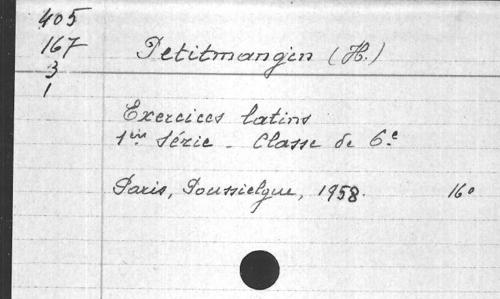 405
167
3
1
Petitmangin (H.)
Exercices latins
1ère série - Classe de 6e
Paris, Poussielgue, 1958. 16°